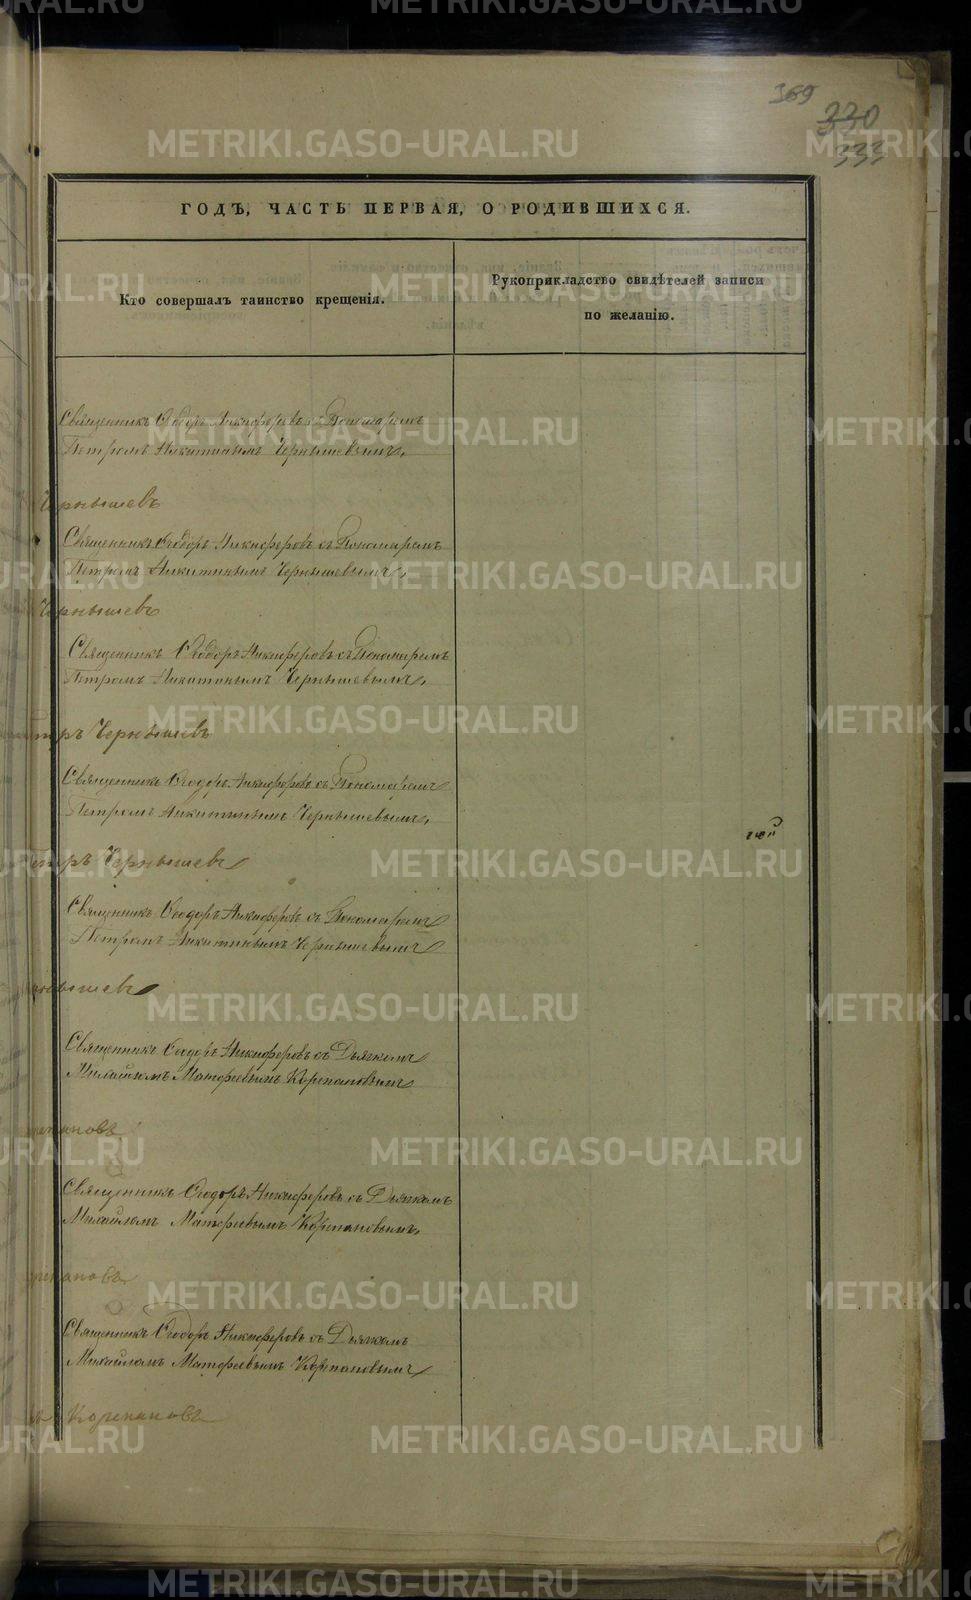 METRIKI.GASO-URAL.RU
369
330
333
ГОДЪ, ЧАСТЬ ПЕРВАЯ, О РОДИВШИХСЯ.
Кто совершалъ таинство крещенія.
Рукоприкладство свидѣтелей записи
по желанію.
Священникъ Ѳеодоръ Никифоровъ съ Пономаремъ
Петромъ Никитинымъ Чернышевымъ,
Чернышевъ
Священникъ Ѳеодоръ Никифоровъ съ Пономаремъ
Петромъ Никитинымъ Чернышевымъ,
Чернышевъ
Священникъ Ѳеодоръ Никифоровъ съ Пономаремъ
Петромъ Никитинымъ Чернышевымъ,
тръ Чернышевъ
Священникъ Ѳеодоръ Никифоровъ съ Пономаремъ
Петромъ Никитинымъ Чернышевымъ,
етръ Чернышевъ
Священникъ Ѳеодоръ Никифоровъ съ Пономаремъ
Петромъ Никитинымъ Чернышевымъ
нышевъ
Священникъ Ѳеодоръ Никифоровъ съ Дьячкомъ
Михайломъ Матфеевымъ Корепановымъ
епановъ
Священникъ Ѳеодоръ Никифоровъ съ Дьячкомъ
Михайломъ Матфеевымъ Корепановымъ,
репановъ
Священникъ Ѳеодоръ Никифоровъ съ Дьячкомъ
Михайломъ Матфеевымъ Корепановымъ
Корепановъ